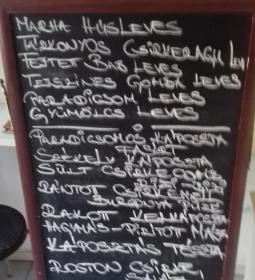 MARHA HÚSLEVES
TÁRKONYOS CSIRKERAGU LEV
FEJTETT BAB LEVES
TEJSZINES GOMBA LEVES
PARADICSOM LEVES
GYÜMÖLCS LEVES
PARADICSOMOS KÁPOSZTA
SZÉKELY KÁPOSZTA
SÜLT CSIRKECOMB
RÁNTOTT CSIRKE
BURGONYA PÜRÉ
RAKOTT KELKÁPOSZTA
HAGYMÁS-PIRÍTOTT MÁJ
KÁPOSZTÁS TÉSZTA
ROSTON CSIRKE